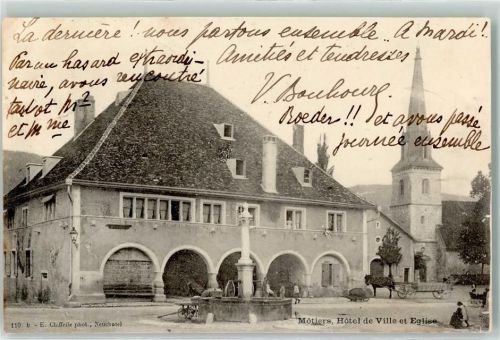 La dernière! nous partons ensemble. A mardi!
Par un hasard extraordi-
naire, avons
rencontré
tantôt Mr
et Mme
Amitiés et tendresses
V. Bonhourg.
Roeder!! et avons passé
journée ensemble
119 b - E. Chiffelle phot., Neuchatel
Môtiers, Hôtel de Ville et Eglise